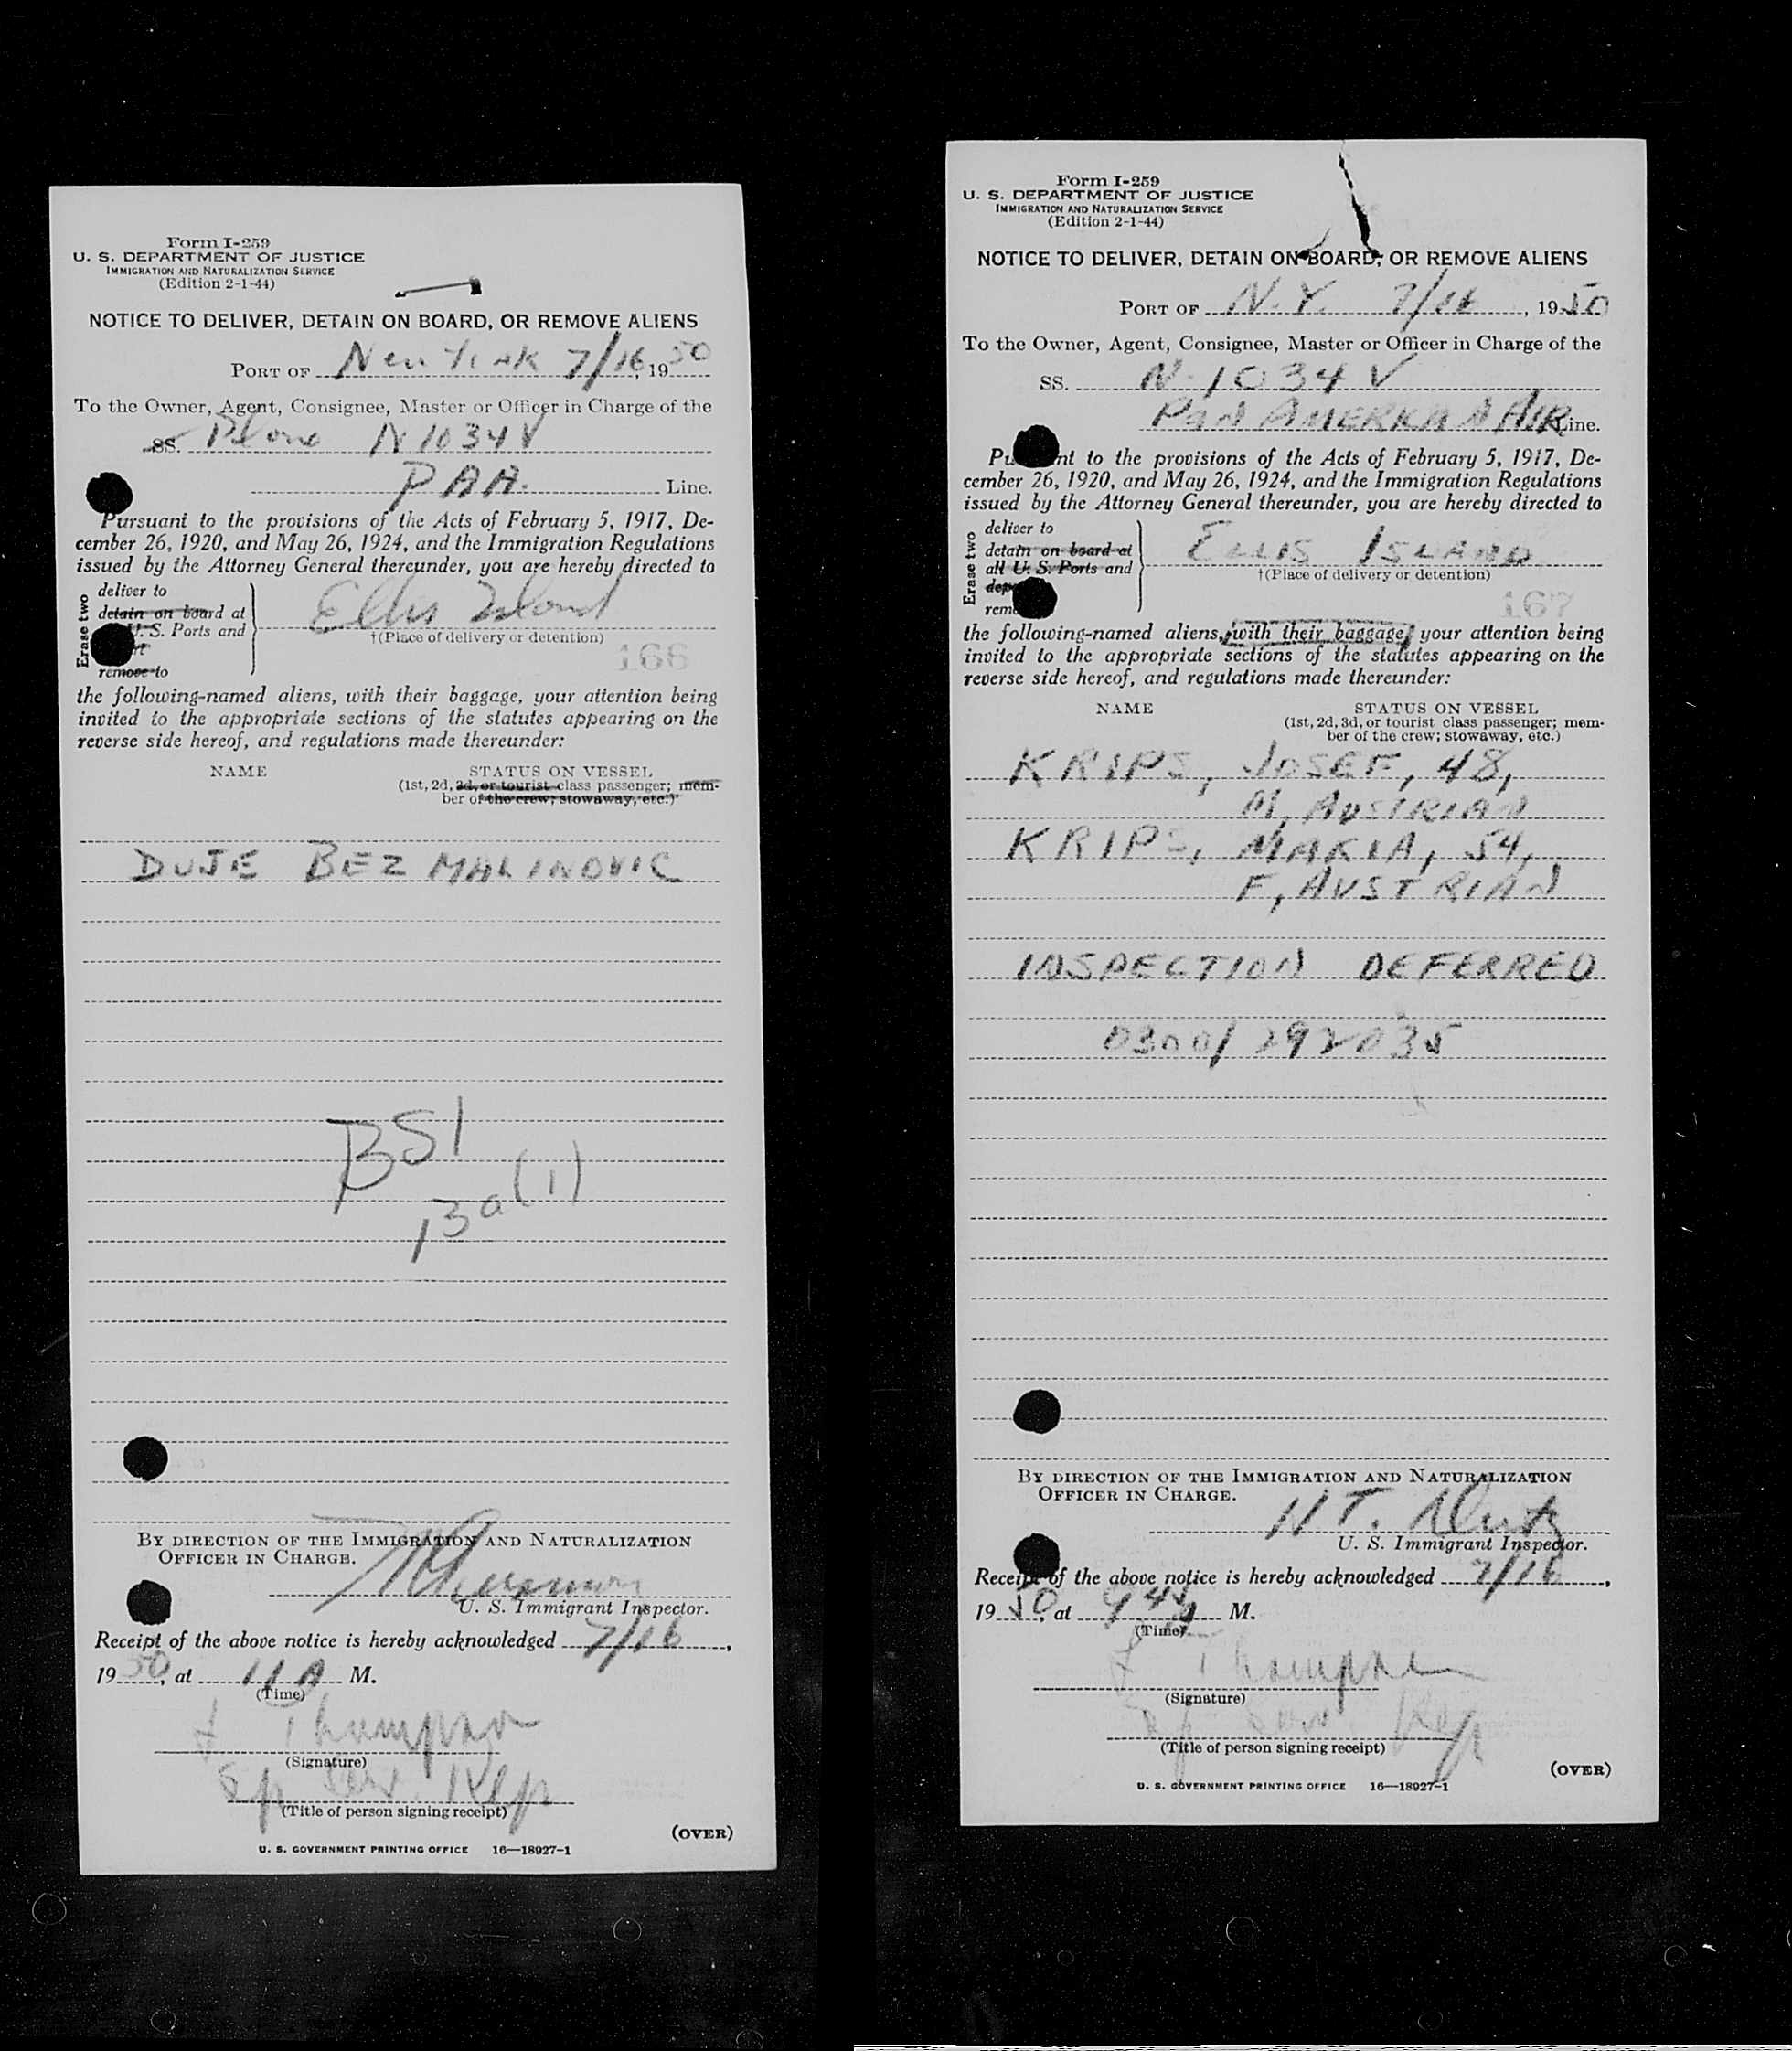 Form I-259
U. S. DEPARTMENT OF JUSTICE
IMMIGRATION AND NATURALIZATION SERVICE
(Edition 2-1-44)
NOTICE TO DELIVER, DETAIN ON BOARD, OR REMOVE ALIENS
PORT OF New York 7/16, 1950
To the Owner, Agent, Consignee, Master or Officer in Charge of the
SS. Plane N1034V
PAA. Line.
Pursuant to the provisions of the Acts of February 5, 1917, De-
cember 26, 1920, and May 26, 1924, and the Immigration Regulations
issued by the Attorney General thereunder, you are hereby directed to
Erase two
deliver to
detain on board at
U. S. Ports and
remove to
Ellis Island
†(Place of delivery or detention)
166
the following-named aliens, with their baggage, your attention being
invited to the appropriate sections of the statutes appearing on the
reverse side hereof, and regulations made thereunder:
NAME STATUS ON VESSEL
(1st, 2d, 3d, or tourist class passenger; mem-
ber of the crew; stowaway, etc.)
DUJE BEZMALINOVIC
BSI
13a(1)
BY DIRECTION OF THE IMMIGRATION AND NATURALIZATION
OFFICER IN CHARGE.
U. S. Immigrant Inspector.
Receipt of the above notice is hereby acknowledged 7/16,
1950, at 11 A M.
(Time)
Thompson
(Signature)
Sp Serv. Rep
(Title of person signing receipt)
(OVER)
U. S. GOVERNMENT PRINTING OFFICE 16—18927-1
Form I-259
U. S. DEPARTMENT OF JUSTICE
IMMIGRATION AND NATURALIZATION SERVICE
(Edition 2-1-44)
NOTICE TO DELIVER, DETAIN ON BOARD, OR REMOVE ALIENS
PORT OF N.Y. 7/16, 1950
To the Owner, Agent, Consignee, Master or Officer in Charge of the
SS. N-1034V
PAN AMERICAN AIR Line.
Pu nt to the provisions of the Acts of February 5, 1917, De-
cember 26, 1920, and May 26, 1924, and the Immigration Regulations
issued by the Attorney General thereunder, you are hereby directed to
Erase two
deliver to
detain on board at
all U. S. Ports and
dep
rem
ELLIS ISLAND
†(Place of delivery or detention)
167
the following-named aliens, with their baggage, your attention being
invited to the appropriate sections of the statutes appearing on the
reverse side hereof, and regulations made thereunder:
NAME STATUS ON VESSEL
(1st, 2d, 3d, or tourist class passenger; mem-
ber of the crew; stowaway, etc.)
KRIPS, JOSEF, 48,
M, AUSTRIAN
KRIPS, MARIA, 54,
F, AUSTRIAN
INSPECTION DEFERRED
0300/292035
BY DIRECTION OF THE IMMIGRATION AND NATURALIZATION
OFFICER IN CHARGE.
U. S. Immigrant Inspector.
Receipt of the above notice is hereby acknowledged 7/16,
1950, at M.
(Time)
Thompson
(Signature)
Sp Serv. Rep
(Title of person signing receipt)
(OVER)
U. S. GOVERNMENT PRINTING OFFICE 16—18927-1